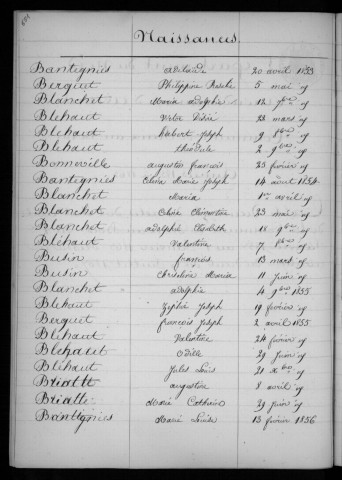 Naissances
Bantignies Adelaïde 20 avril 1853
Berguet Philippine 5 mai id
Blanchet Maria Adolphe 12 id
Bléhaut Victor Désiré 23 mars id
Bléhaut Hubert Joseph 9 8bre id
Bléhaut 2 9bre id
Bonneville augustin françois 25 février id
Bantignies Marie Joseph 14 août 1854
Blanchet Maria 1er avril id
Blanchet Clémentine 23 mai id
Blanchet adolphe 18 9bre id
Bléhaut Valentine 7 id
Busin françois 13 mars id
Busin Christine Maria 11 juin id
Blanchet adolphe 4 9bre 1855
Bléhaut Joseph 19 février id
Berguet françois Joseph 2 avril 1855
Bléhaut Valentine 24 février id
Bléhaut Odille 29 juin id
Bléhaut Jules Louis 21 Xbre id
Briatte augustine 8 avril id
Briatte Marie Catherine 29 juin id
Bantignies Marie Louise 13 février 1856